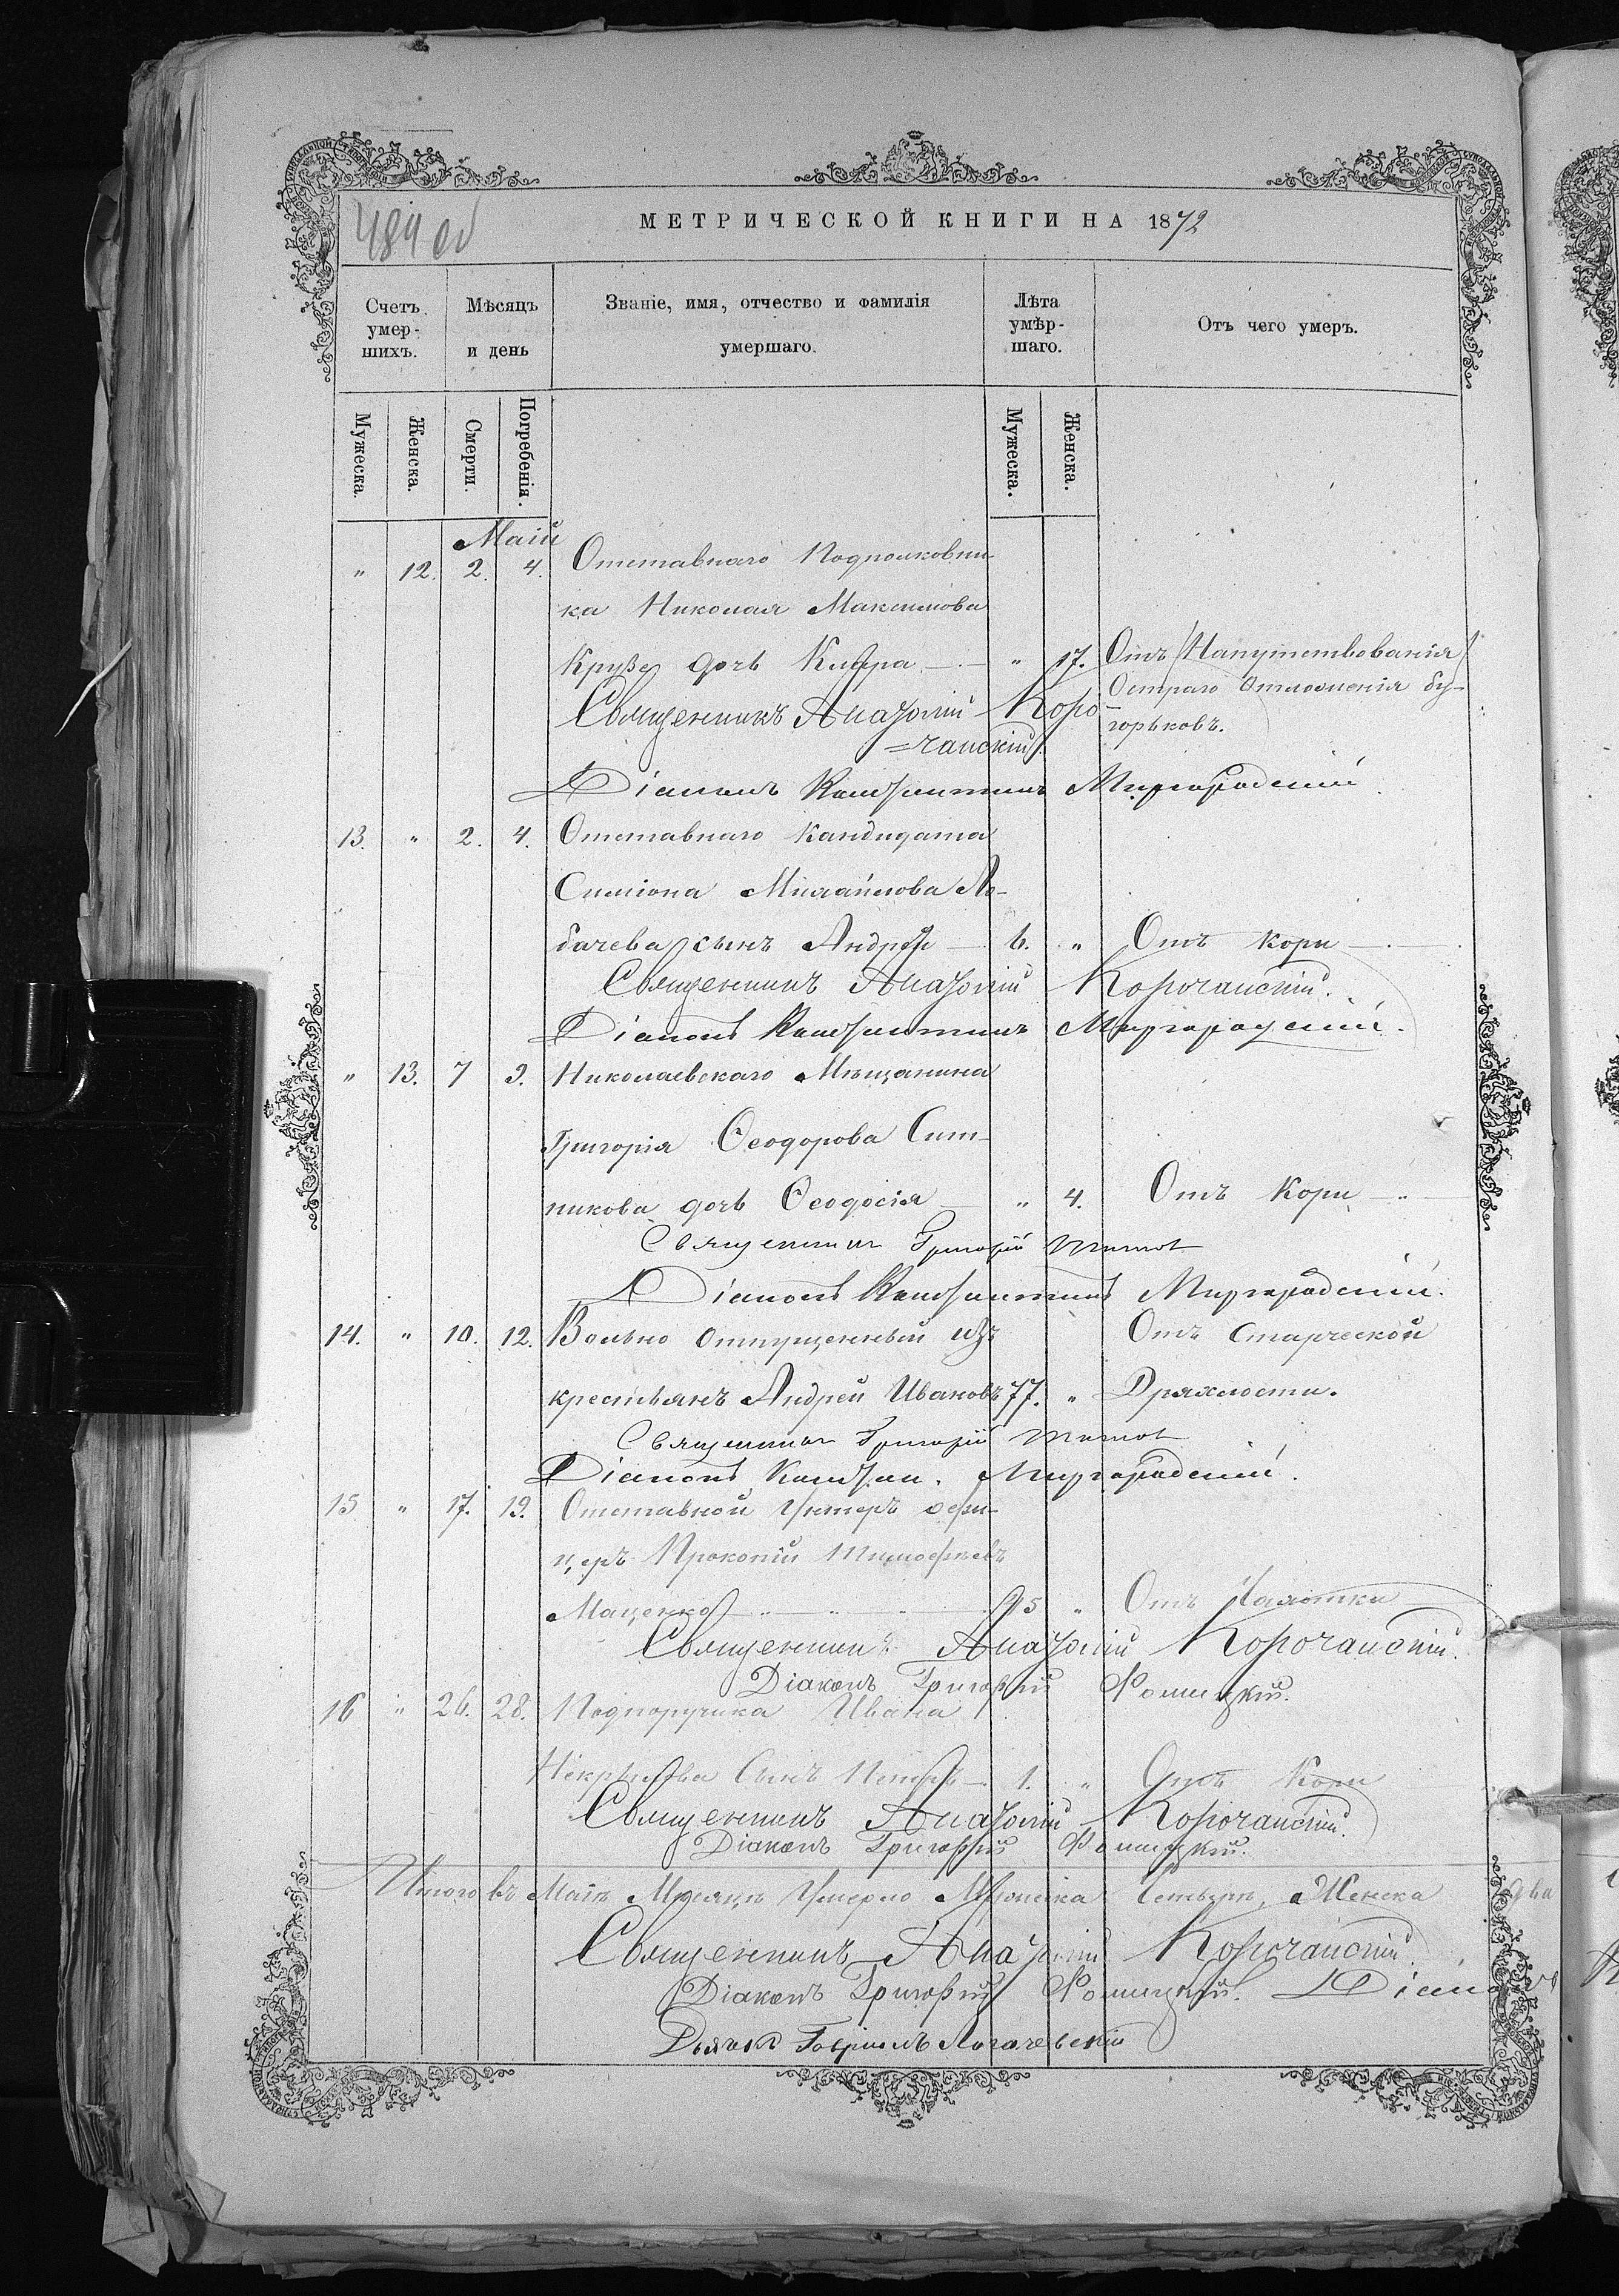 484 об
МЕТРИЧЕСКОЙ КНИГИ НА 1872
Счетъ умер-шихъ.
Мѣсяцъ и день
Званіе, имя, отчество и фамилія умершаго.
Лѣта умѣр-шаго.
Отъ чего умеръ.
Мужеска. Женска. Смерти. Погребенія. Мужеска. Женска.
Маій
" 12. 2. 4. Отставнаго Подполковни-
ка Николая Максимова
Крузе дочь Клара " 17. Отъ
Остраго Отложенія бу-
горьковъ.
Священникъ Анатолій Коро-
=чанскій.
Діаконъ Константинъ Миргородскій
13. " 2. 4. Отставнаго Кандидата
Симіона Михайлова Ло-
бачева сынъ Андрей 6. " Отъ Кори
Священникъ Анатолій Корочанскій.
Діаконъ Константинъ Миргородскій.
" 13. 7 9. Николаевскаго Мѣщанина
Григорія Ѳеодорова Сит-
никова дочь Ѳеодосія " 4. Отъ Кори
Священникъ Григорій
Діаконъ Константинъ Миргородскій.
14. " 10. 12. Вольно отпущенный изъ Отъ Старческой
крестьянъ Андрей Ивановъ 77. " Дряхлости.
Священникъ Григорій
Діаконъ Констан. Миргородскій.
15 " 17. 19. Отставной Унтеръ офи-
церъ Прокопій Тимофѣевъ
Маценко 95 " Отъ Чахотки
Священникъ Анатолій Корочанскій.
Діаконъ Григорій Фомицкій.
16 " 26. 28. Подпоручика Ивана
Некрасова Сынъ Петръ 1. " Отъ Кори
Священникъ Анатолій Корочанскій.
Діаконъ Григорій Фомицкій.
Итого въ Маіѣ Мѣсяцѣ Умерло Мужеска Четыре, Женска два
Священникъ Анатолій Корочанскій
Діаконъ Григорій Фомицкій. Діаконъ
Дьячокъ Гавріилъ